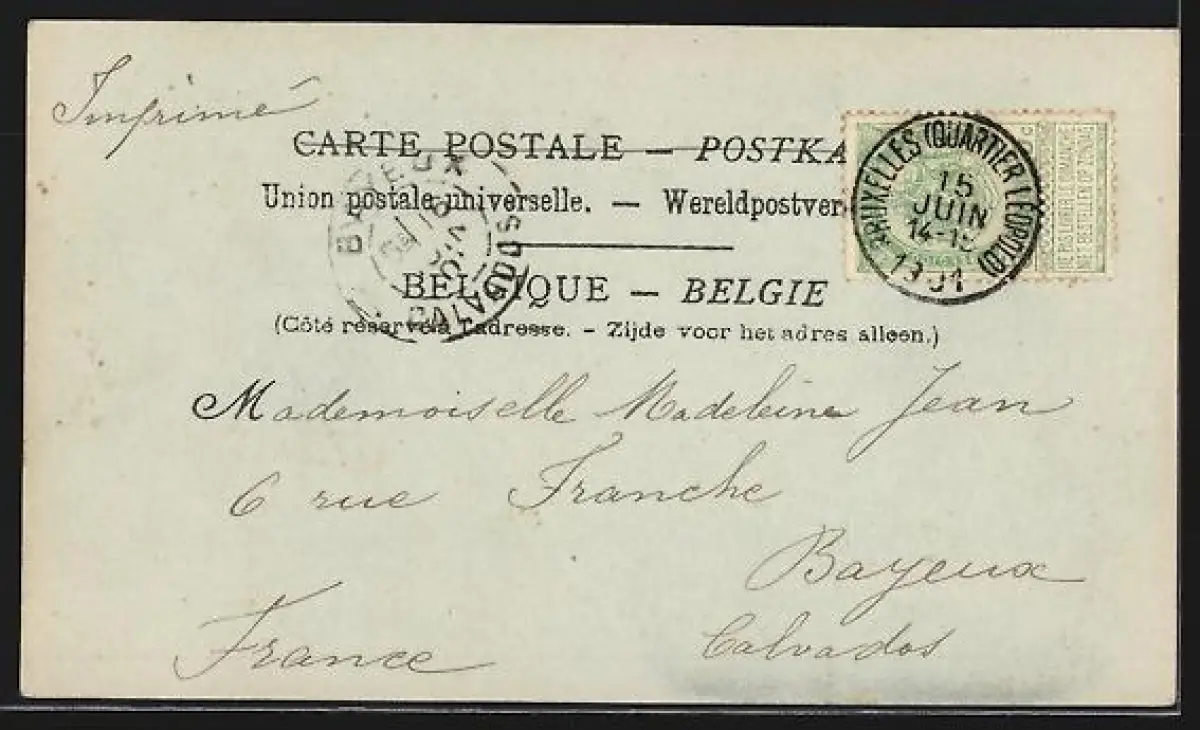 Imprimé
CARTE POSTALE — POSTKA
Union postale universelle. — Wereldpostver
BELGIQUE — BELGIE
(Côté réservé à l'adresse. - Zijde voor het adres alleen.)
BRUXELLES (QUARTIER LÉOPOLD)
15
JUIN
14-15
1901
NE PAS LIVRER LE DIMANCHE
NIET BESTELLEN OP ZONDAG
BAYEUX
CALVADOS
Mademoiselle Madeleine Jean
6 rue Franche
Bayeux
Calvados
France